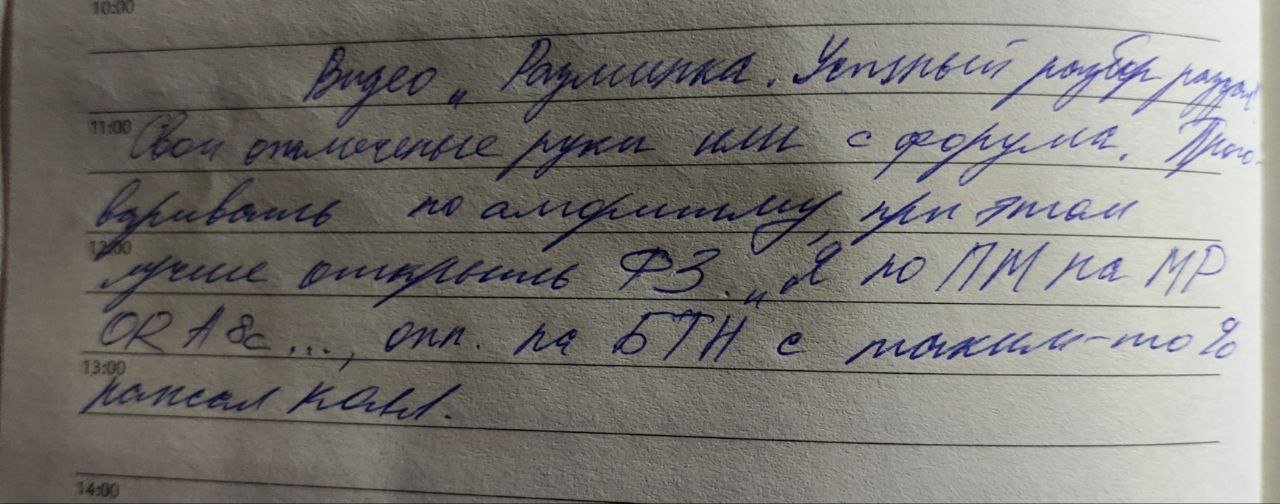 10:00
Видео „ Разминка. Устный разбор раздач
11:00
Свои отмеченые руки или с форума. Прого-
варивать по алгоритму, при этом
12:00
лучше открыть ФЗ. „Я по ПМ на МР
OR A8c ..., опп. на БТН с таким-то %
13:00
нажал колл.
14:00